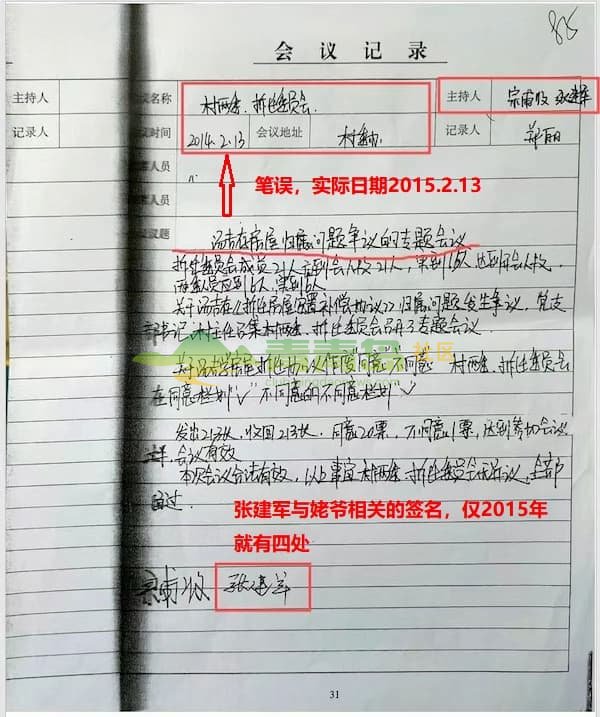 会议记录
主持人 议名称 村两委.拆迁委员会. 主持人 宗甫收 张建军
记录人 议时间 2014.2.13 会议地址 村委办 记录人 郑丽
席人员
席人员
议议题
笔误，实际日期2015.2.13
房屋归属问题争议的专题会议
拆迁委员会成员21人 应到会人数21人，实到16人，达到开会人数，
两委人员应到6人，实到6人
关于 《拆迁房屋安置补偿协议》归属问题发生争议，党支
部书记、村主任召集村两委、拆迁委员会召开了专题会议.
关于 房屋拆迁协议作废"同意""不同意" 村两委、拆迁委员会
在同意栏划"√" 不同意的不同意栏划"√"
青青岛社区
发出21张，收回21张，同意20票，不同意1票，达到参加会议
会议有效
本次会议合法有效，以上事宜村两委、拆迁委员会无异议，全部
通过.
张建军与姥爷相关的签名，仅2015年
就有四处
张建军
31